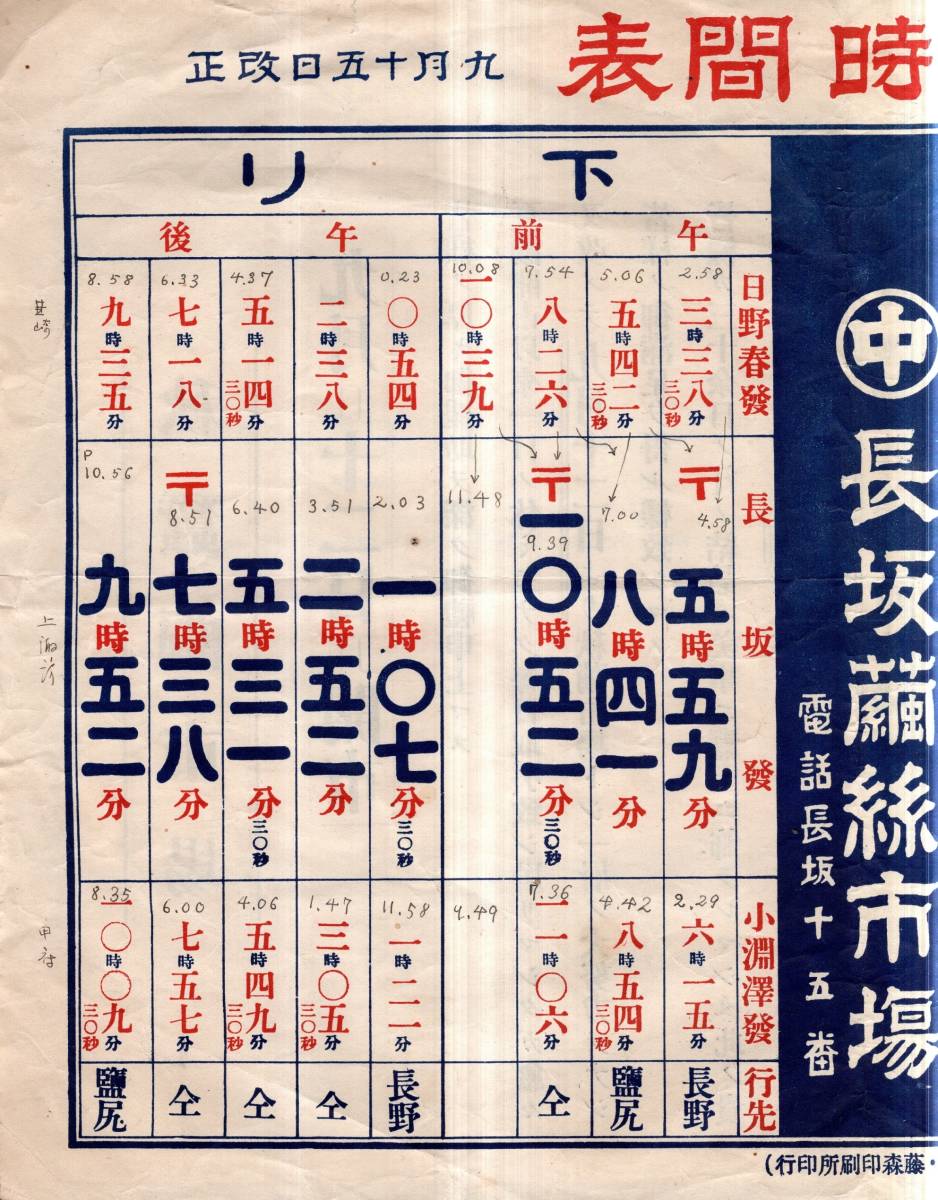 時間表
九月十五日改正
㊥長坂繭絲市場
電話長坂十五番
下リ
午前
午後
日野春發
2.58
三時三八分三〇秒
5.06
五時四二分三〇秒
7.54
八時二六分
10.08
一〇時三九分
0.23
〇時五四分
二時三八分
4.37
五時一四分三〇秒
6.33
七時一八分
8.58
九時三五分
韮崎
長坂發
〒
4.58
五時五九分
7.00
八時四一分
〒
9.39
一〇時五二分三〇秒
11.48
2.03
一時〇七分三〇秒
3.51
二時五二分
6.40
五時三一分三〇秒
〒
8.51
七時三八分
P
10.56
九時五二分
上諏訪
小淵澤發
2.29
六時一五分
4.42
八時五四分三〇秒
7.36
一一時〇六分
9.49
11.58
一時二一分
1.47
三時〇五分三〇秒
4.06
五時四九分三〇秒
6.00
七時五七分
8.35
一〇時〇九分三〇秒
甲府
行先
長野
鹽尻
仝
長野
仝
仝
仝
鹽尻
・藤森印刷所印行)